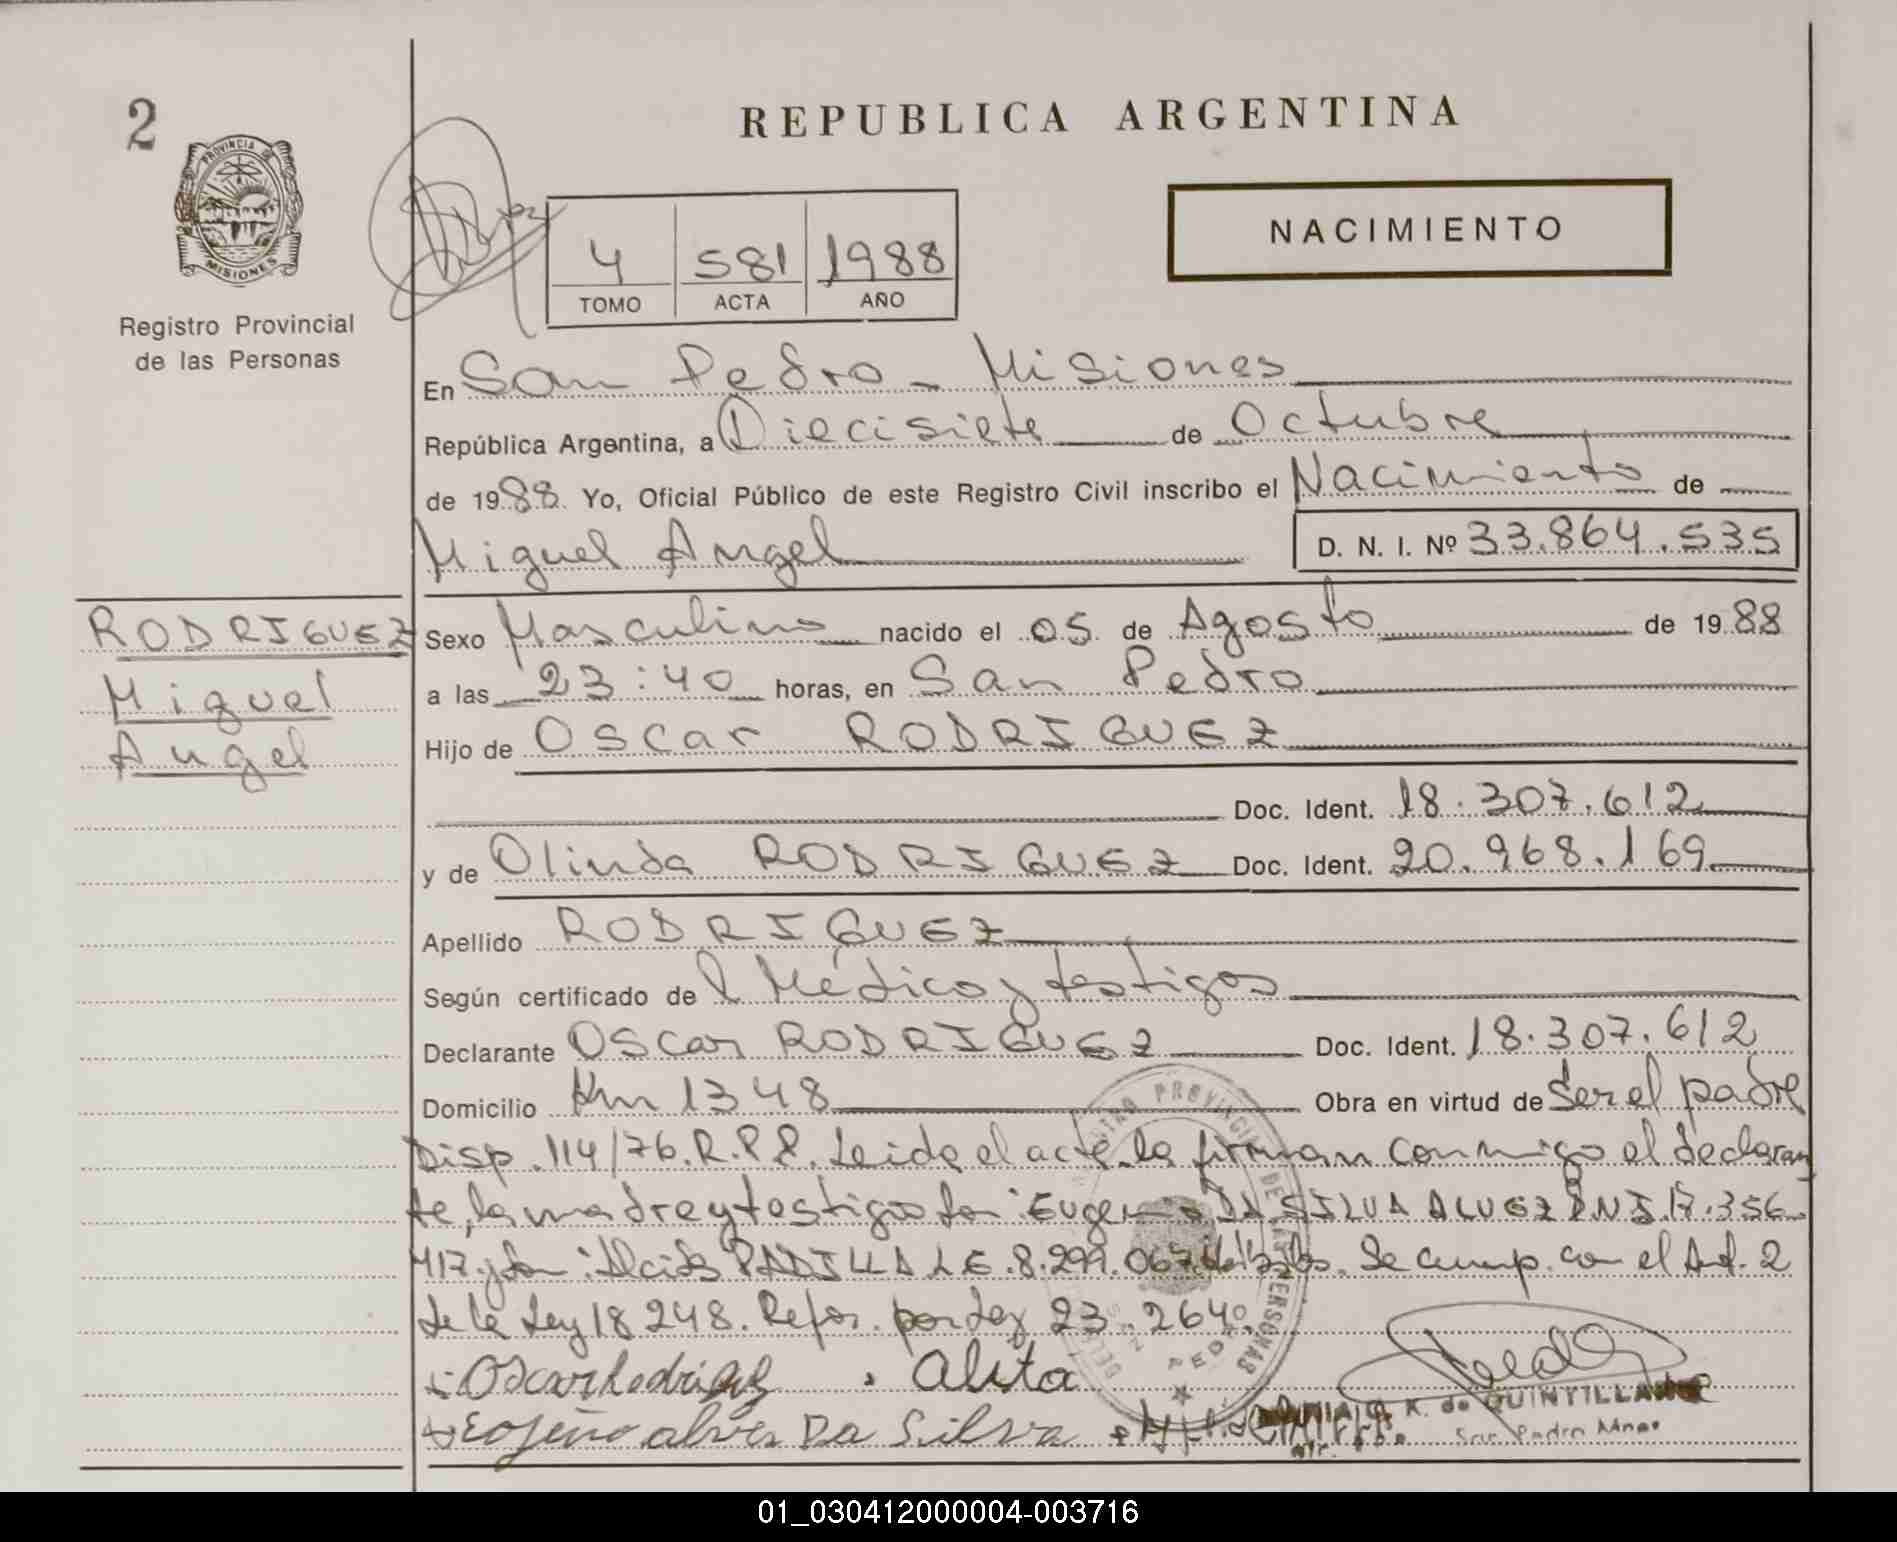 2
REPUBLICA ARGENTINA
PROVINCIA DE
MISIONES
Registro Provincial
de las Personas
4 581 1988
TOMO ACTA AÑO
NACIMIENTO
En San Pedro - Misiones
República Argentina, a Diecisiete de Octubre
de 1988. Yo, Oficial Público de este Registro Civil inscribo el Nacimiento de
Miguel Angel
D. N. I. Nº 33.864.535
RODRIGUEZ
Miguel
Angel
Sexo Masculino nacido el 05 de Agosto de 1988
a las 23:40 horas, en San Pedro
Hijo de Oscar RODRIGUEZ
Doc. Ident. 18.307.612
y de Olinda RODRIGUEZ Doc. Ident. 20.968.169
Apellido RODRIGUEZ
Según certificado de l Médico y testigos
Declarante Oscar RODRIGUEZ Doc. Ident. 18.307.612
Domicilio Km 1348 Obra en virtud de Ser el padre
Disp. 114/76.R.P.P. Leida el acta la firman conmigo el declaran
te, la madre y testigos Don: Eugenio DA SILVA ALVEZ D.N.I. 17.356.
417 y Don: Alcides PADILLA L.E. 8.299.067 Se cump. con el Art. 2
de la Ley 18248. Refor. por Ley 23.264.
Oscar Rodriguez Alita
Eojenio alves Da Silva
K. de QUINTILLA
San Pedro Mnes
01_030412000004-003716